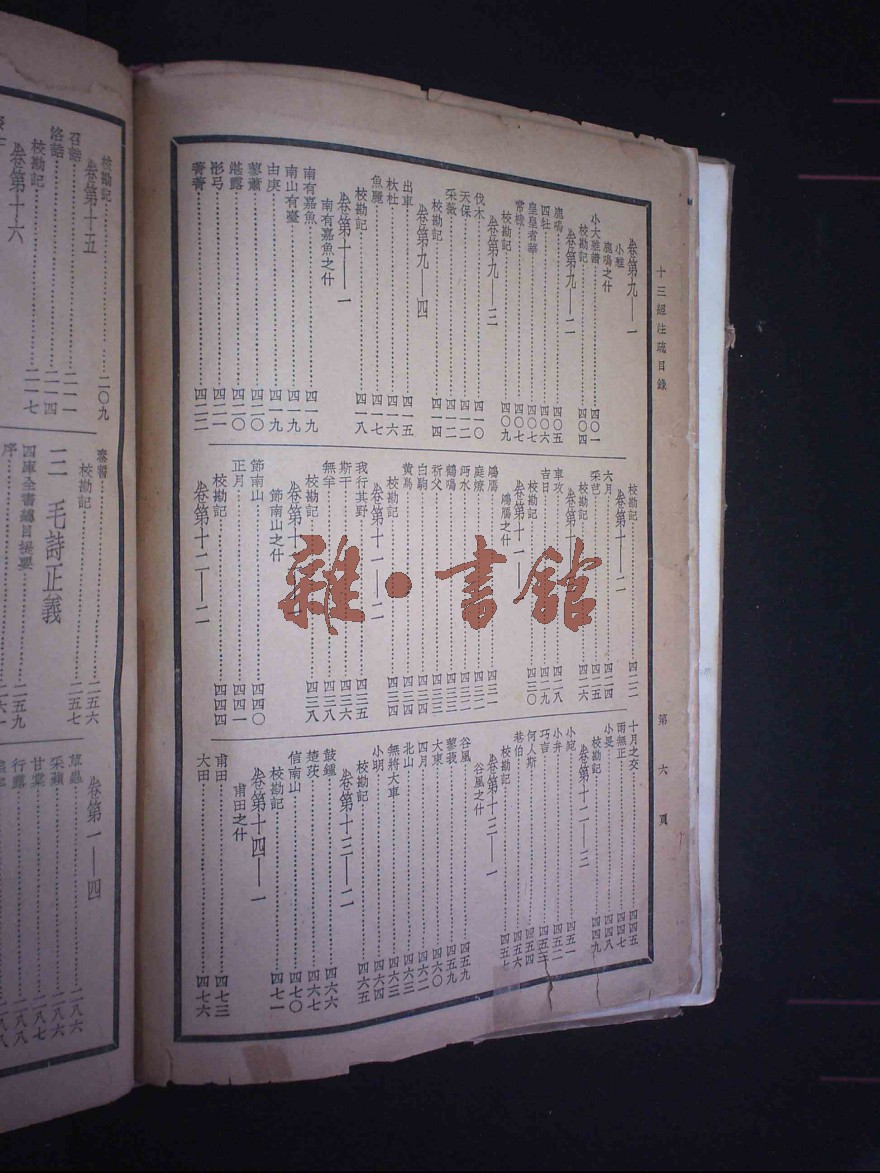 十三經注疏目錄
第六頁
卷第九——一
小雅
鹿鳴之什
小大雅譜 四〇一
校勘記 四〇四
卷第九——二
鹿鳴 四〇五
四牡 四〇六
皇皇者華 四〇七
常棣 四〇七
校勘記 四〇九
卷第九——三
伐木 四一〇
天保 四一二
采薇 四一二
校勘記 四一四
卷第九——四
出車 四一五
杕杜 四一六
魚麗 四一七
校勘記 四一八
卷第十——一
南有嘉魚之什
南有嘉魚 四一九
南山有臺 四一九
由庚 四一九
蓼蕭 四二〇
湛露 四二〇
彤弓 四二一
菁菁 四二二
校勘記 四二二
卷第十——二
六月 四二四
采芑 四二五
校勘記 四二六
車攻 四二八
吉日 四二九
校勘記 四三〇
卷第十一——一
鴻鴈之什
鴻鴈 四三一
庭燎 四三二
沔水 四三二
鶴鳴 四三三
祈父 四三三
白駒 四三四
黃鳥 四三四
校勘記 四三四
卷第十一——二
我行其野 四三五
斯干 四三六
無羊 四三八
校勘記 四三八
節南山之什
節南山 四四〇
正月 四四一
校勘記 四四四
卷第十二——二
十月之交 四四五
雨無正 四四七
小旻 四四八
校勘記 四四九
卷第十二——三
小宛 四五一
小弁 四五二
巧言 四五三
何人斯 四五四
巷伯 四五六
校勘記 四五七
卷第十三——一
谷風之什
谷風 四五九
蓼莪 四五九
大東 四六〇
四月 四六二
北山 四六三
無將大車 四六三
小明 四六四
校勘記 四六五
卷第十三——二
鼓鍾 四六六
楚茨 四六七
信南山 四七〇
校勘記 四七一
卷第十四——一
甫田之什
甫田 四七三
大田 四七六
校勘記 二〇九
卷第十五
召誥 二一一
洛誥 二一四
校勘記 二一七
卷第十六
秦誓 二五六
校勘記 二五七
三 毛詩正義
四庫全書總目提要 二五九
序 二六一
卷第一——四
草蟲 二八六
采蘋 二八六
甘棠 二八七
行露 二八八
雜·書館